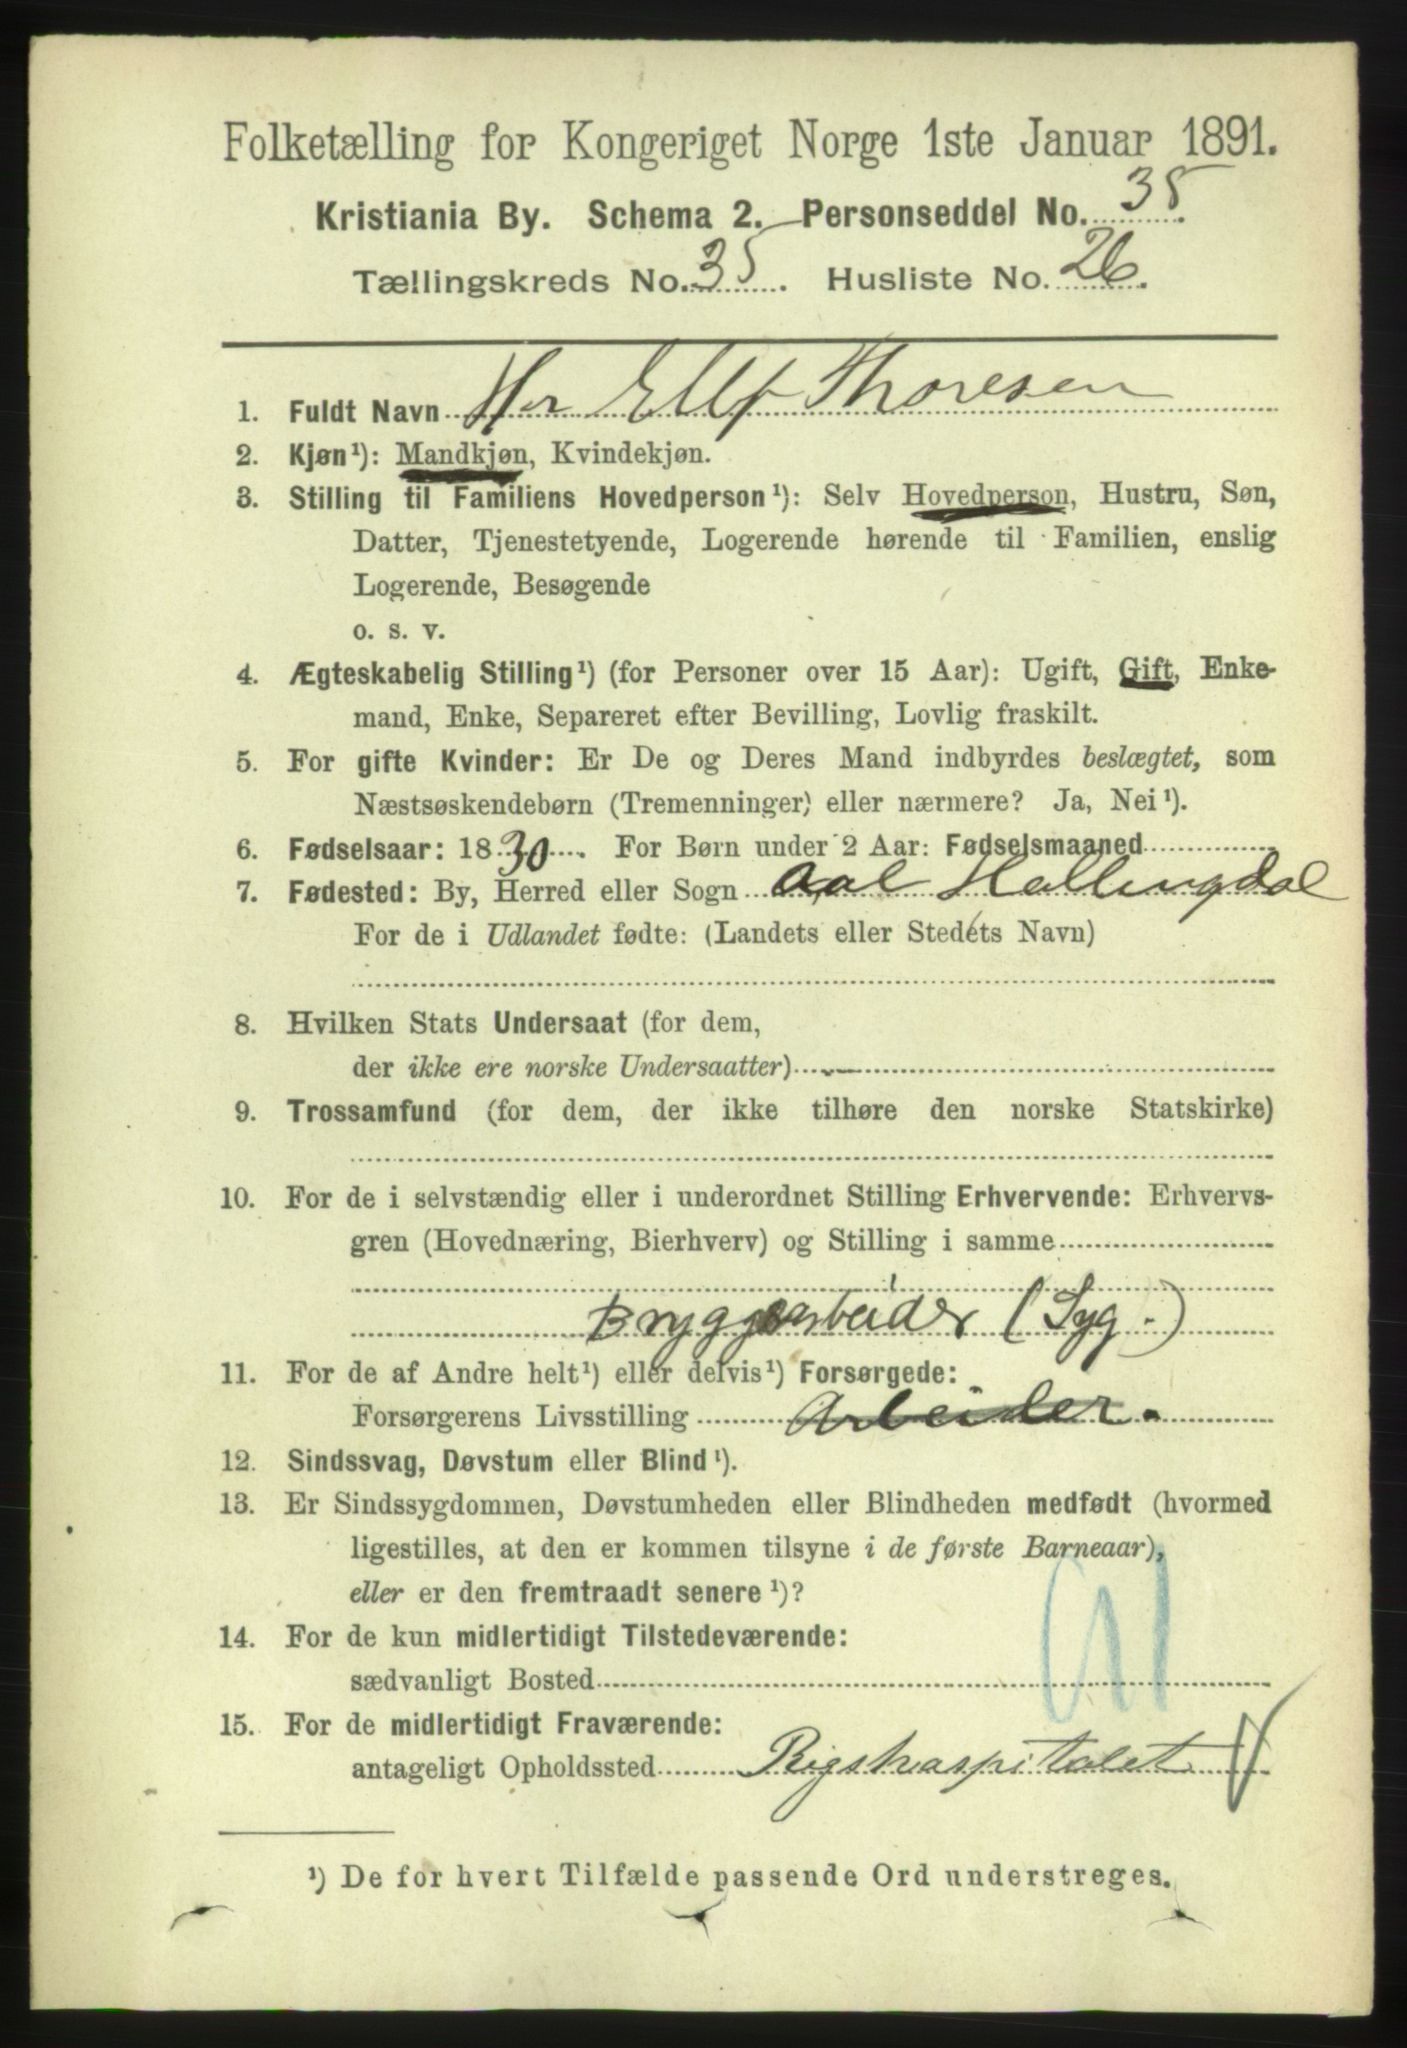 Folketælling for Kongeriget Norge 1ste Januar 1891.
Kristiania By. Schema 2. Personseddel No. 35.
Tællingskreds No. 35. Husliste No. 26.
1. Fuldt Navn Hr Ellf Thoresen
2. Kjøn¹): Mandkjøn, Kvindekjøn.
3. Stilling til Familiens Hovedperson¹): Selv Hovedperson, Hustru, Søn,
Datter, Tjenestetyende, Logerende hørende til Familien, enslig
Logerende, Besøgende
o. s. v.
4. Ægteskabelig Stilling¹) (for Personer over 15 Aar): Ugift, Gift, Enke-
mand, Enke, Separeret efter Bevilling, Lovlig fraskilt.
5. For gifte Kvinder: Er De og Deres Mand indbyrdes beslægtet, som
Næstsøskendebørn (Tremenninger) eller nærmere? Ja, Nei¹).
6. Fødselsaar: 1830. For Børn under 2 Aar: Fødselsmaaned
7. Fødested: By, Herred eller Sogn Aal Hallingdal
For de i Udlandet fødte: (Landets eller Stedets Navn)
8. Hvilken Stats Undersaat (for dem,
der ikke ere norske Undersaatter)
9. Trossamfund (for dem, der ikke tilhøre den norske Statskirke)
10. For de i selvstændig eller i underordnet Stilling Erhvervende: Erhvervs-
gren (Hovednæring, Bierhverv) og Stilling i samme
Bryggearbeider (Syg.)
11. For de af Andre helt¹) eller delvis¹) Forsørgede:
Forsørgerens Livsstilling Arbeider.
12. Sindssvag, Døvstum eller Blind¹).
13. Er Sindssygdommen, Døvstumheden eller Blindheden medfødt (hvormed
ligestilles, at den er kommen tilsyne i de første Barneaar),
eller er den fremtraadt senere¹)?
14. For de kun midlertidigt Tilstedeværende:
sædvanligt Bosted
15. For de midlertidigt Fraværende:
antageligt Opholdssted Rigshospitalet
¹) De for hvert Tilfælde passende Ord understreges.